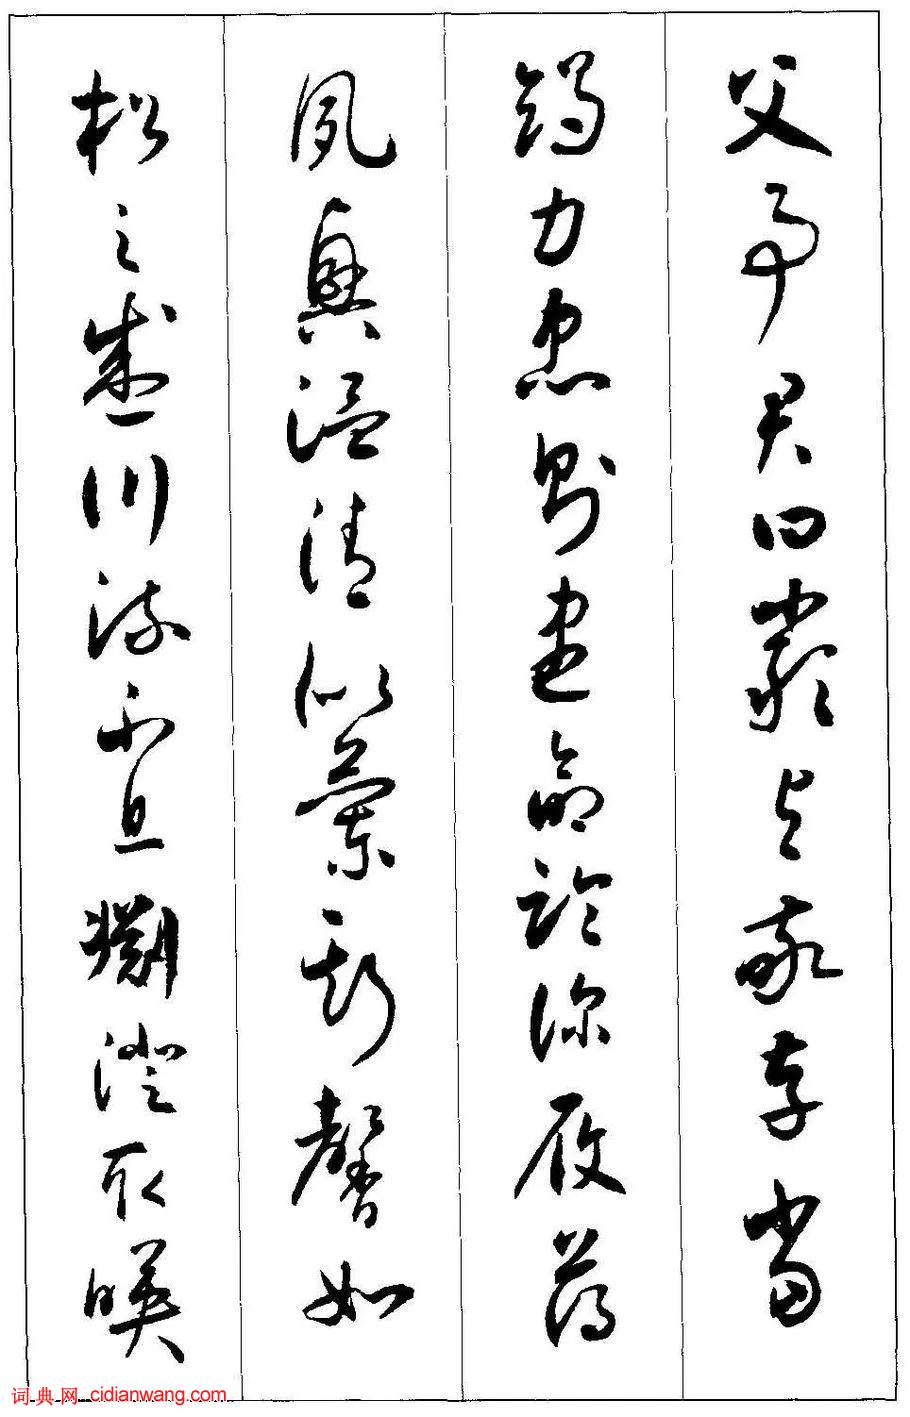 父事君曰嚴與敬孝當
竭力忠則盡命臨深履薄
夙興溫凊似蘭斯馨如
松之盛川流不息淵澄取映
词典网_cidianwang.com